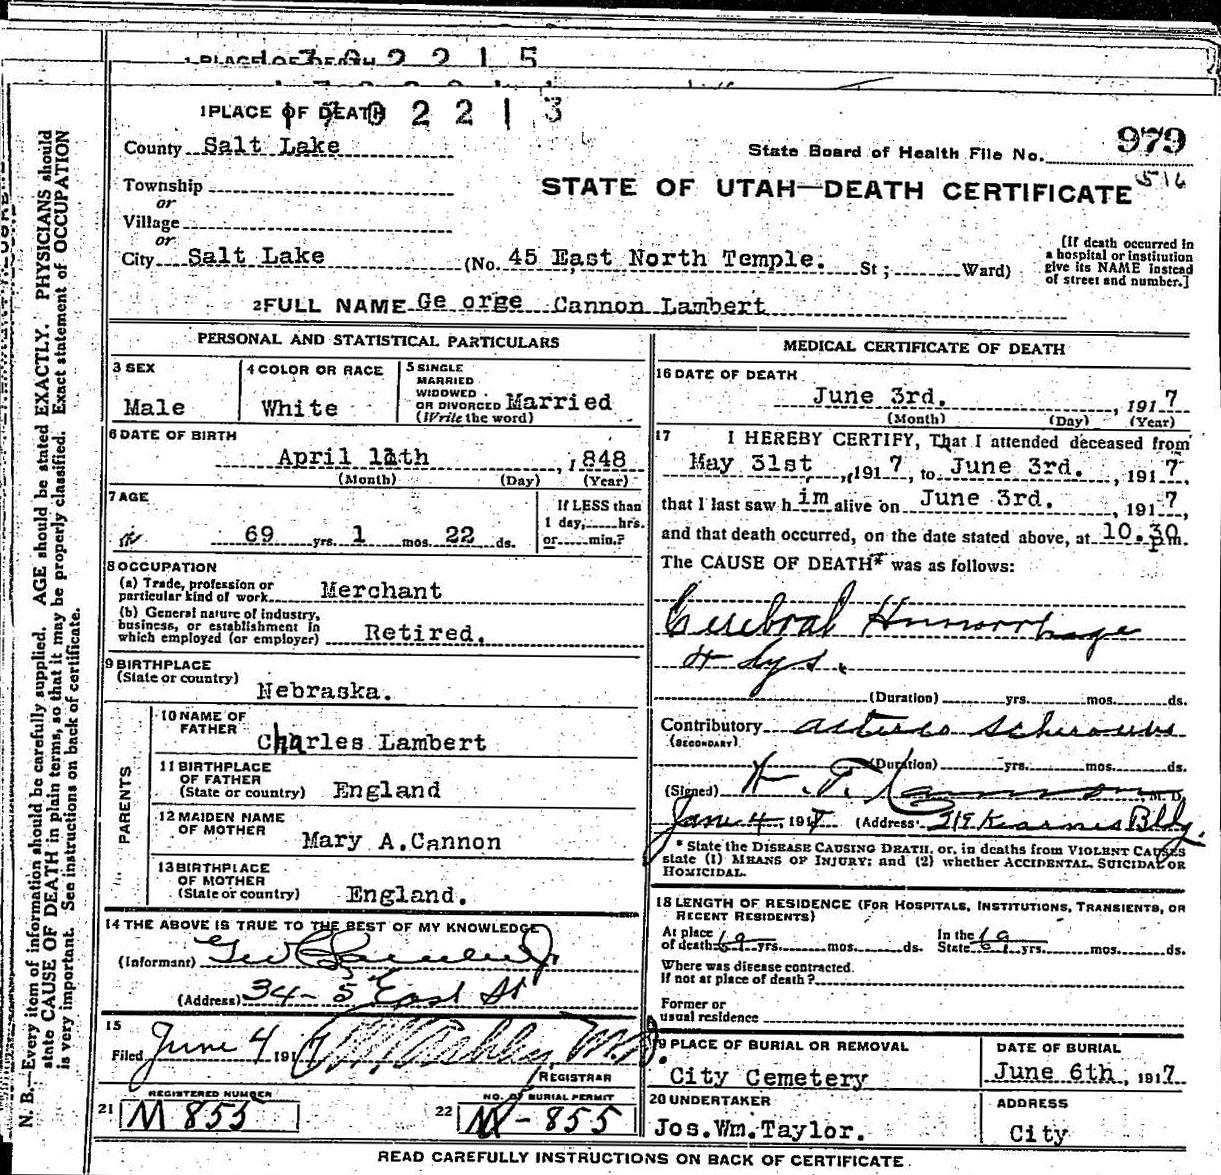 1 PLACE OF DEATH
1702215
1 PLACE OF DEATH
1702213
County Salt Lake
979
State Board of Health File No.
516
Township
or
STATE OF UTAH—DEATH CERTIFICATE
Village
or
City Salt Lake (No. 45 East North Temple. St; Ward)
[If death occurred in
a hospital or institution
give its NAME instead
of street and number.]
2 FULL NAME Ge orge Cannon Lambert
PERSONAL AND STATISTICAL PARTICULARS
3 SEX
Male
4 COLOR OR RACE
White
5 SINGLE
MARRIED
WIDOWED
OR DIVORCED Married
(Write the word)
6 DATE OF BIRTH
April 11th, 1848
(Month) (Day) (Year)
7 AGE
69 yrs. 1 mos. 22 ds.
If LESS than
1 day, hrs.
or min.?
8 OCCUPATION
(a) Trade, profession or
particular kind of work Merchant
(b) General nature of industry,
business, or establishment in
which employed (or employer) Retired.
9 BIRTHPLACE
(State or country)
Nebraska.
PARENTS
10 NAME OF
FATHER
Charles Lambert
11 BIRTHPLACE
OF FATHER
(State or country) England
12 MAIDEN NAME
OF MOTHER
Mary A.Cannon
13 BIRTHPLACE
OF MOTHER
(State or country) England.
14 THE ABOVE IS TRUE TO THE BEST OF MY KNOWLEDGE
(Informant) Geo C Lambert Jr
(Address) 34-5 East St
15
Filed June 4 1917 M.D.
REGISTRAR
REGISTERED NUMBER
21 M 855
NO. OF BURIAL PERMIT
22 M-855
MEDICAL CERTIFICATE OF DEATH
16 DATE OF DEATH
June 3rd., 1917
(Month) (Day) (Year)
17 I HEREBY CERTIFY, That I attended deceased from
May 31st, 1917, to June 3rd., 1917,
that I last saw him alive on June 3rd., 1917,
and that death occurred, on the date stated above, at 10.30 pm.
The CAUSE OF DEATH* was as follows:
Cerebral Hemorrhage
(Duration) yrs. mos. ds.
Contributory
(SECONDARY)
(Duration) yrs. mos. ds.
(Signed) M. D.
June 4, 1917 (Address) 319 Kearns Bldg.
* State the DISEASE CAUSING DEATH, or, in deaths from VIOLENT CAUSES
state (1) MEANS OF INJURY; and (2) whether ACCIDENTAL, SUICIDAL OR
HOMICIDAL.
18 LENGTH OF RESIDENCE (FOR HOSPITALS, INSTITUTIONS, TRANSIENTS, OR
RECENT RESIDENTS)
At place
of death 69 yrs. mos. ds.
In the
State yrs. mos. ds.
Where was disease contracted,
If not at place of death?
Former or
usual residence
19 PLACE OF BURIAL OR REMOVAL
City Cemetery
DATE OF BURIAL
June 6th, 1917
20 UNDERTAKER
Jos.Wm.Taylor.
ADDRESS
City
READ CAREFULLY INSTRUCTIONS ON BACK OF CERTIFICATE.
N. B.—Every item of information should be carefully supplied. AGE should be stated EXACTLY. PHYSICIANS should
state CAUSE OF DEATH in plain terms, so that it may be properly classified. Exact statement of OCCUPATION
is very important. See instructions on back of certificate.